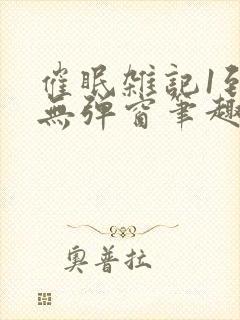 催眠雑記1到
無彈窗筆趣
奧普拉